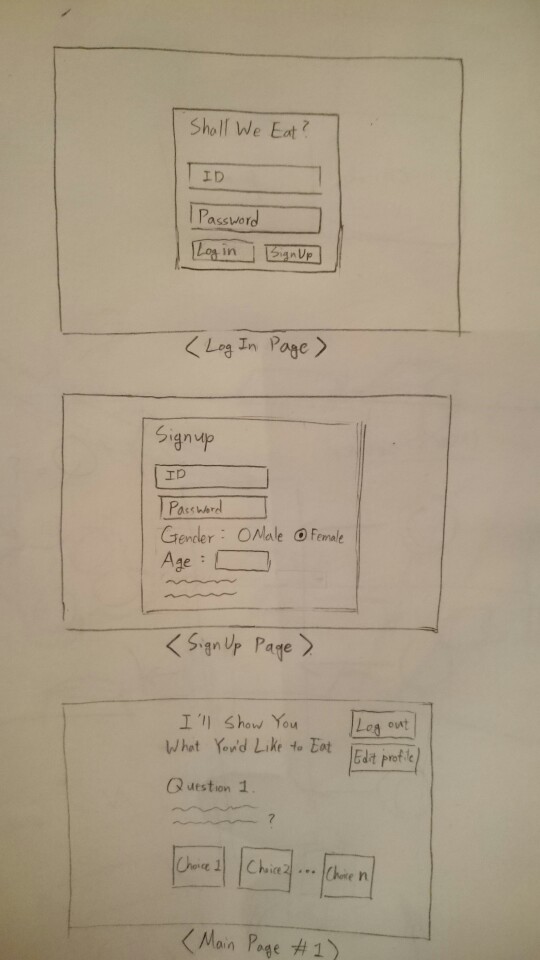 Shall We Eat?
ID
Password
Log in SignUp
< Log In Page >
Signup
ID
Password
Gender : Male Female
Age :
< SignUp Page >
I'll Show You
What You'd Like to Eat
Log out
Edit profile
Question 1.
?
Choice 1 Choice 2 ... Choice n
< Main Page #1 >